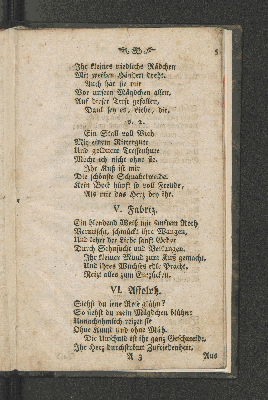 5
Ihr kleines niedlichs Rädchen
Mit weißen Händen dreht.
Auch hat sie mir
Vor unsern Mägdchen allen,
Auf dieser Trift gefallen,
Dank sey es, Liebe, dir.
v. 2.
Ein Stall voll Vieh
Mit einem Rittergute
Und goldnem Tressenhute
Möcht ich nicht ohne sie.
Ihr Kuß ist mir
Die schönste Schnabelweide.
Kein Bock hüpft so voll Freude,
Als mir das Herz bey ihr.
V. Fabriz.
Ein blendend Weiß mit sanftem Roth
Vermischt, schmückt ihre Wangen,
Und lehrt der Liebe sanft Gebot
Durch Sehnsucht und Verlangen.
Ihr kleiner Mund zum Kuß gemacht,
Und ihres Wuchses edle Pracht,
Reizt alles zum Entzücken.
VI.
Siehst du jene Rose glühn?
So siehst du mein Mägdchen blühn:
Unnachahmlich reizet sie
Ohne Kunst und ohne Müh.
Die Unschuld ist ihr ganz Geschmeide,
Ihr Herz durchströmet Zufriedenheit.
A 3
Aus